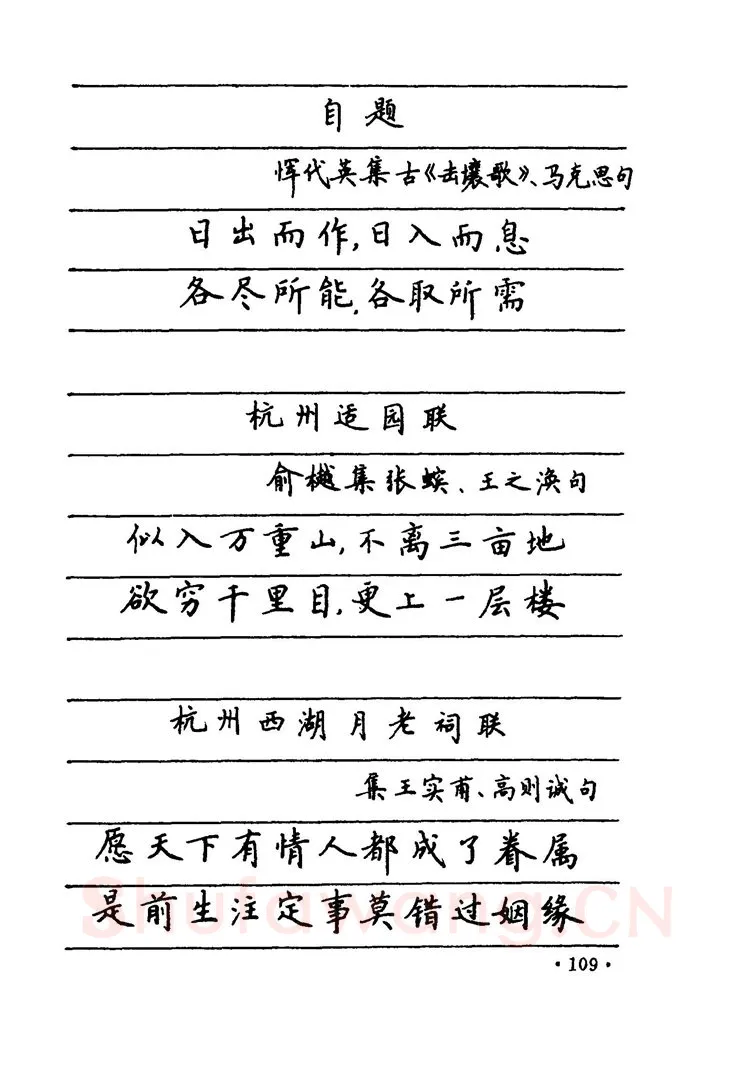 自题
恽代英集古《击壤歌》、马克思句
日出而作,日入而息
各尽所能,各取所需
杭州适园联
俞樾集张蠙、王之涣句
似入万重山,不离三亩地
欲穷千里目,更上一层楼
杭州西湖月老祠联
集王实甫、高则诚句
愿天下有情人都成了眷属
是前生注定事莫错过姻缘
Shufawang.CN
·109·